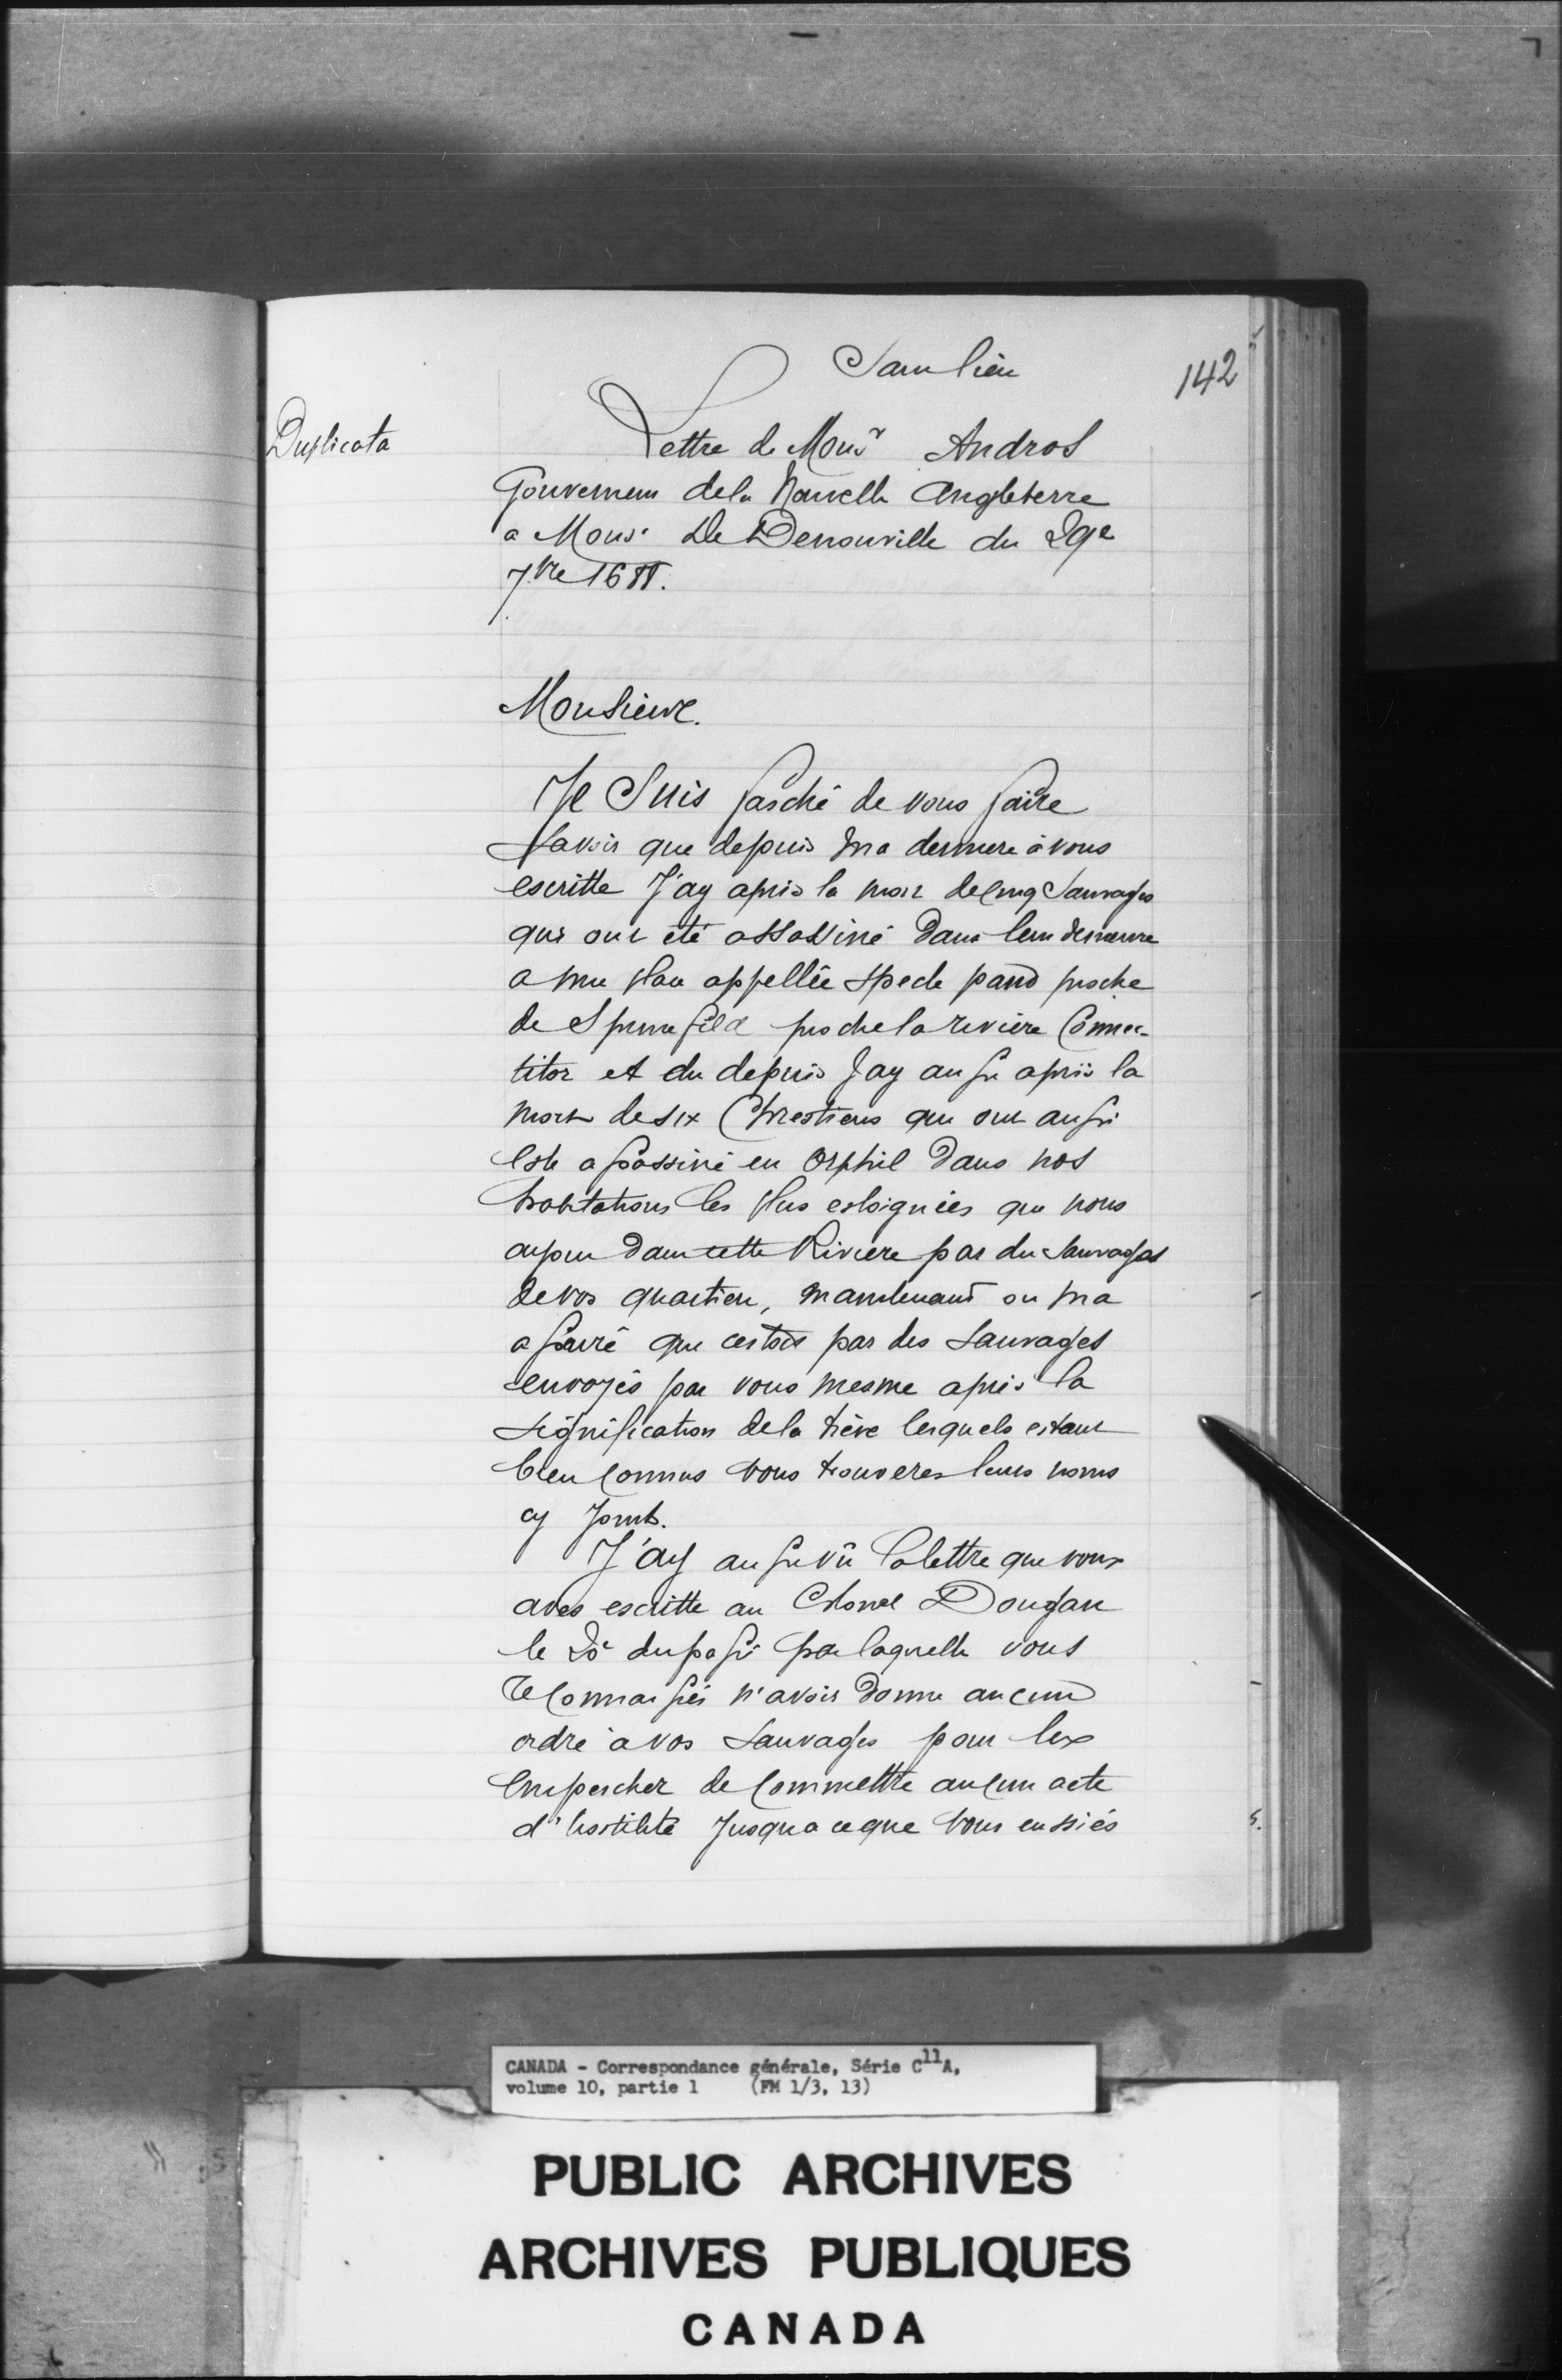 Sans lieu
142
Duplicata
Lettre de Monsr Andros
Gouverneur dela Nouvelle Angleterre
a Monsr De Denonville du 29e
7bre 1688.
Monsieur.
Je Suis fasché de vous faire
savoir que depuis ma derniere à vous
escritte J'ay apris la mort de cinq Sauvages
qui ont été assassiné dans leur demeure
a une place appellée specle pand proche
de Sprinefild proche la riviere Connec-
titor et du depuis Jay aussi apris la
mort de six Chrestiens qui ont aussi
esté assassiné en Orphil dans nos
habitations les plus esloignées que nous
ayons dans cette Riviere par du Sauvages
de vos quartiers, maintenant on ma
assuré que cestois par des Sauvages
envoyés par vous mesme apres la
signification dela trève lesquels estant
bien connus vous trouveres leurs noms
cy Joints.
J'ay aussi vû la lettre que vous
avés escritte au Colonel Dongan
le 20e du passé par laquelle vous
reconnaissés n'avoir donné aucun
ordre à vos Sauvages pour les
empescher de commettre aucun acte
d'hostilité Jusqua ceque vous eussiés
CANADA - Correspondance générale, Série C11A,
volume 10, partie 1 (FM 1/3, 13)
PUBLIC ARCHIVES
ARCHIVES PUBLIQUES
CANADA